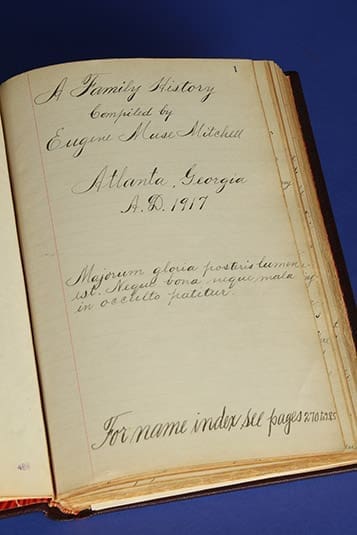 1
A Family History
Compiled by
Eugene Muse Mitchell
Atlanta, Georgia
A.D. 1917
Majorum gloria posteris lumen
est. Neque bona neque mala
in occulto patitur.
For name index see pages 270 to 285